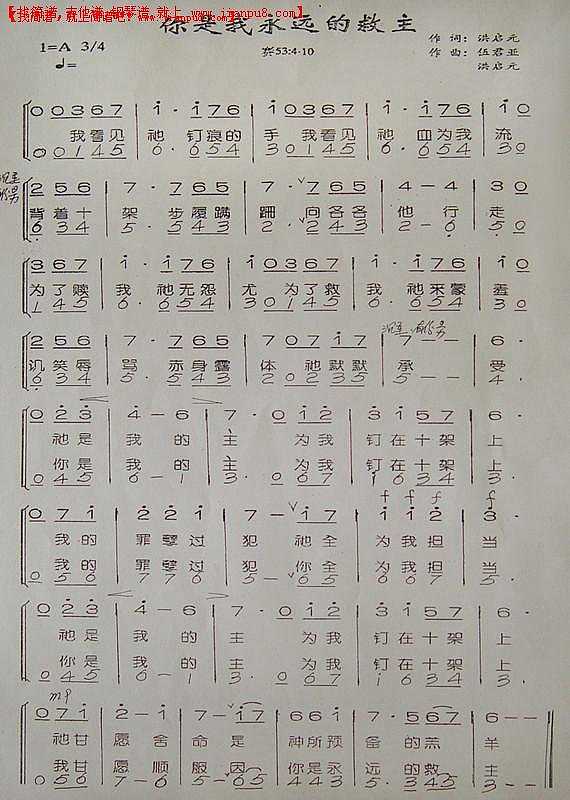 【找简谱，吉他谱，钢琴谱 就上 www.jianpu8.com】
你是我永远的救主
1=A 3/4
赛53:4-10
作 词: 洪启元
作 曲: 伍君亚
洪启元
00367 | i·i76 | i·0367 | i·i76 | i0
我看见 祂 钉痕的 手 我看见 祂 血为我 流
00145 | 6·654 | 30145 | 6·654 | 30
256 | 7·765 | 7·765 | 4-4 | 30
背着十 架 步履蹒 跚 向各各 他 行 走
634 | 5·543 | 2·243 | 2-6 | 50
367 | i·i76 | i0367 | i·i76 | i0
为了赎 我 祂无怨 尤 为了救 我 祂来蒙 羞
145 | 6·654 | 30145 | 6·654 | 30
256 | 7·765 | 70717 | 7-- | 6·
讥笑辱 骂 赤身露 体 祂默默 承 受
634 | 5·543 | 20235 | 5·5· | 4·
023 | 4-6 | 7·012 | 3157 | 6·
祂是 我 的 主 为我 钉在十架 上
你是 我 的 主 为我 钉在十架 上
045 | 6-1 | 3·067 | 1634 | 3·
f f f f
071 | 221 | 7-·17 | 112 | 3·
我的 罪孽过 犯 祂全 为我担 当
我的 罪孽过 犯 你全 为我担 当
056 | 776 | 5-·56 | 667 | 5·
023 | 4-6 | 7·012 | 3157 | 6·
祂是 我 的 主 为我 钉在十架 上
你是 我 的 主 为我 钉在十架 上
045 | 6-1 | 3·067 | 1634 | 3·
mp
071 | 2-1 | 7-17 | 661 | 7·567 | 6--
祂甘 愿舍 命是 神所预 备的羔 羊
我甘 愿顺 服因 你是永 远的救 主
056 | 7-6 | 5-65 | 446 | 5·345 | 1--